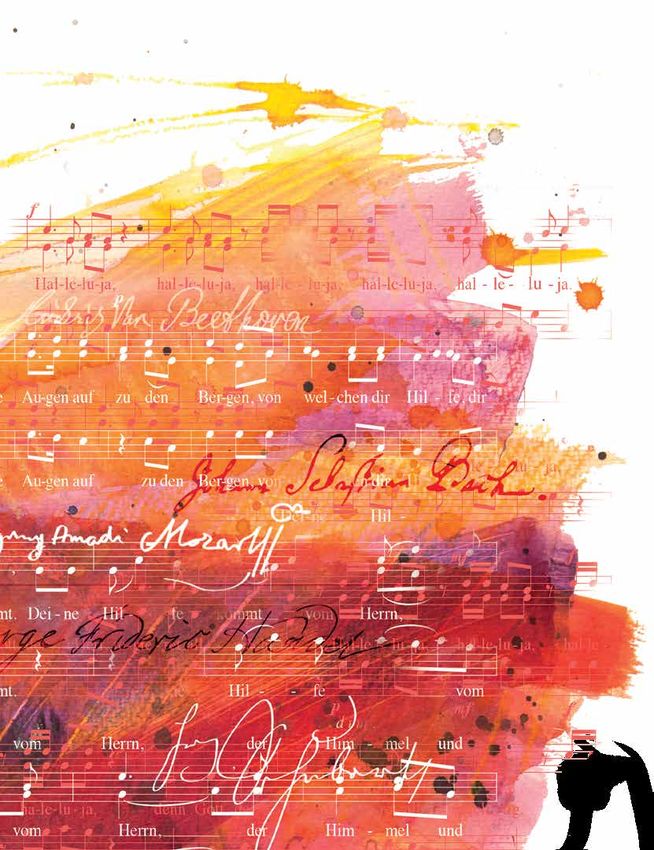 Hal-le-lu-ja, hal-le-lu-ja, hal-le-lu-ja, hal-le-lu-ja, hal-le-lu-ja.
Ludwig Van Beethoven
Au-gen auf zu den Ber-gen, von wel-chen dir Hil-fe, dir
Au-gen auf zu den Ber-gen, von
Johann Sebastian Bach.
Hil-
Amadi Mozart
mt. Dei-ne Hil-fe kommt vom Herrn,
rge Frideric Handel
mt. Hil--fe vom
vom Herrn, der Him-mel und
ha-le-lu-ja, denn Gott
vom Herrn, der Him-mel und